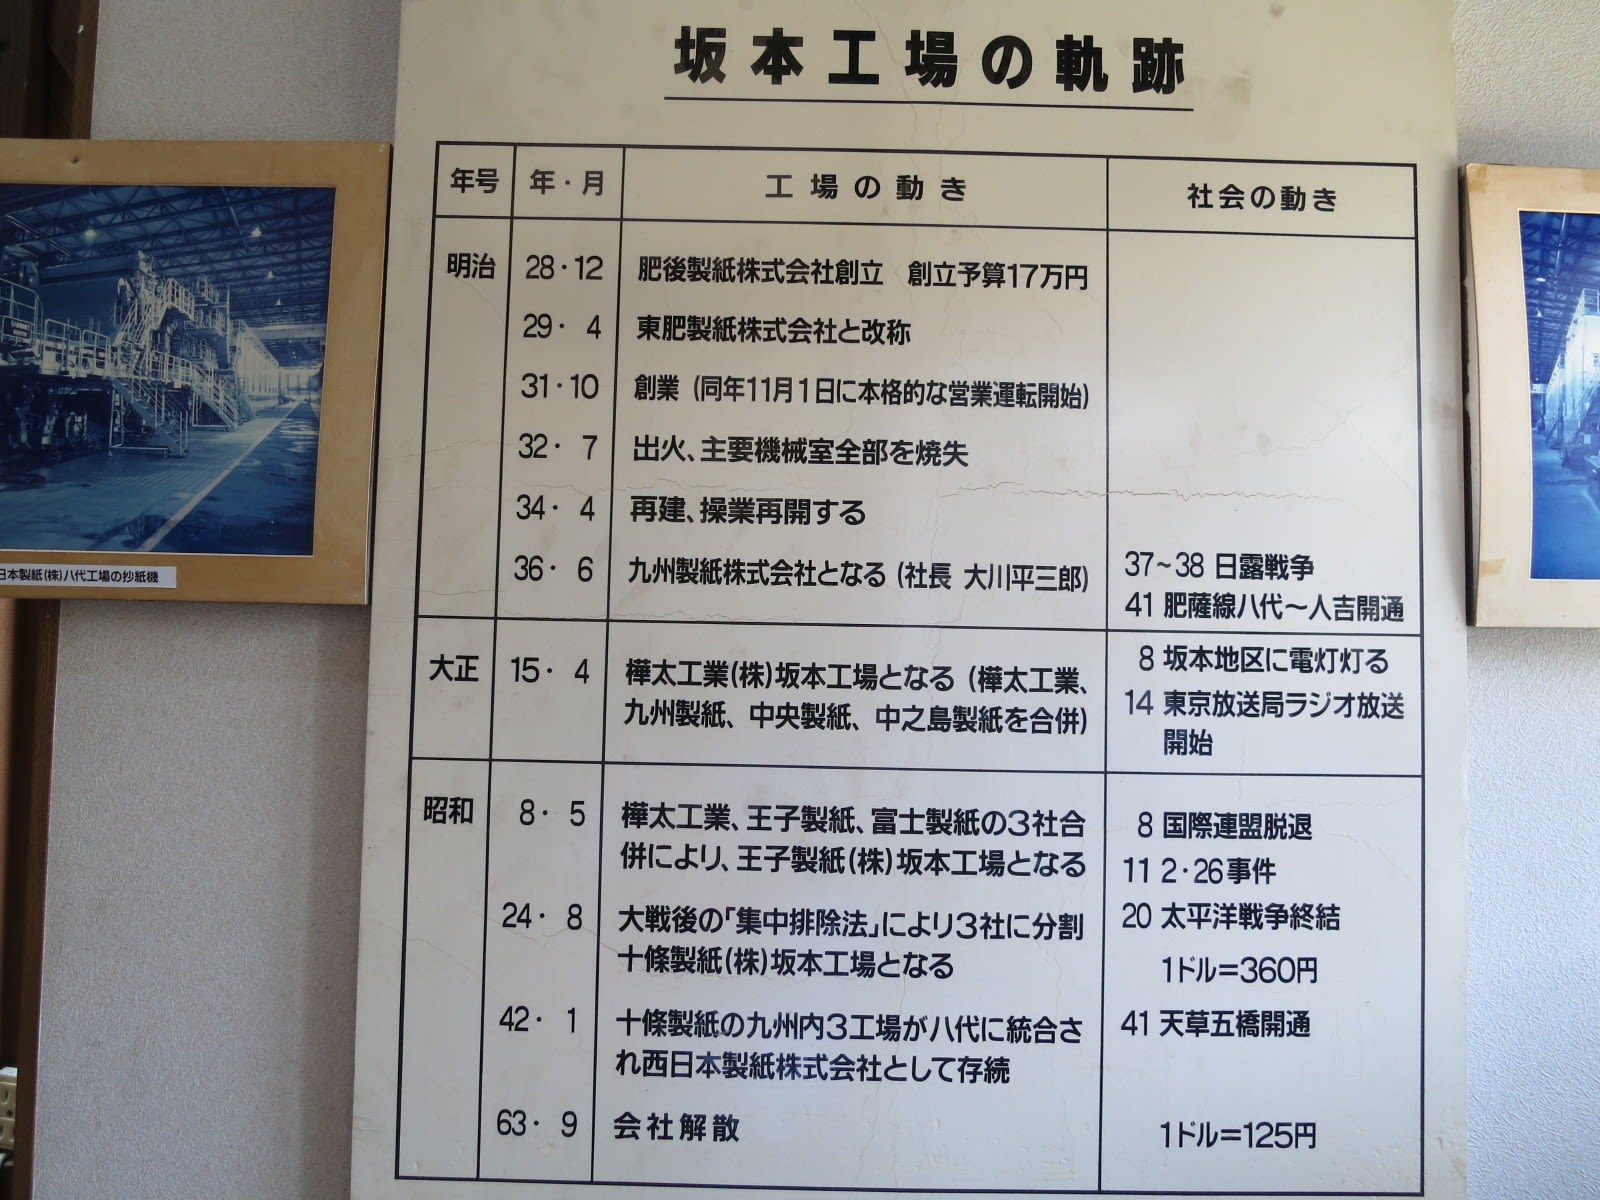 坂本工場の軌跡
年号 年・月 工場の動き 社会の動き
明治 28・12 肥後製紙株式会社創立 創立予算17万円
29・4 東肥製紙株式会社と改称
31・10 創業(同年11月1日に本格的な営業運転開始)
32・7 出火、主要機械室全部を焼失
34・4 再建、操業再開する
36・6 九州製紙株式会社となる(社長 大川平三郎)
37~38 日露戦争
41 肥薩線八代~人吉開通
大正 15・4 樺太工業(株)坂本工場となる(樺太工業、
九州製紙、中央製紙、中之島製紙を合併)
8 坂本地区に電灯灯る
14 東京放送局ラジオ放送
開始
昭和 8・5 樺太工業、王子製紙、富士製紙の3社合
併により、王子製紙(株)坂本工場となる
8 国際連盟脱退
11 2・26事件
24・8 大戦後の「集中排除法」により3社に分割
十條製紙(株)坂本工場となる
20 太平洋戦争終結
1ドル=360円
42・1 十條製紙の九州内3工場が八代に統合さ
れ西日本製紙株式会社として存続
41 天草五橋開通
63・9 会社解散
1ドル=125円
日本製紙(株)八代工場の抄紙機